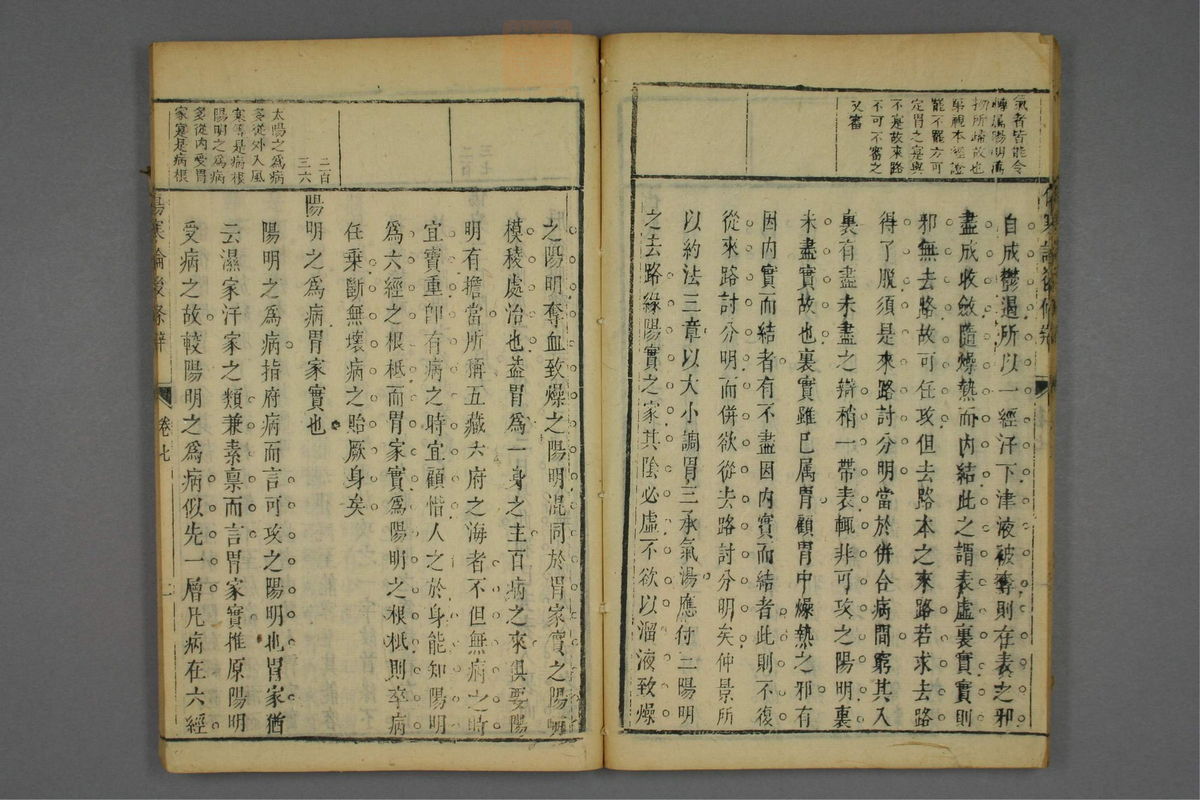 氣者皆能令
轉屬陽明萬
物所歸故也
第視本經證
罷不罷方可
定胃之寔與
不寔故來路
不可不審之
又審
自成鬱遏所以一經汗下津液被奪則存表之邪
盡成收斂隨燥熱而內結此之謂表虛裏實實則
邪無去路故可任攻但去路本之來路若求去路
得了脫須是來路討分明當於併合病間窮其入
裏有盡未盡之辯稍一帶表輒非可攻之陽明裏
未盡實故也裏實雖已属胃顧胃中燥熱之邪有
因內實而結者有不盡因內實而結者此則不復
從來路討分明而併欲從去路討分明矣仲景所
以約法三章以大小調胃三承氣湯應付三陽明
之去路緣陽實之家其陰必虛不欲以溜液致燥
之陽明奪血致燥之陽明混同於胃家實之陽明
模稜處治也葢胃爲一身之主百病之來俱要陽
明有擔當所稱五藏六府之海者不但無病之時
宜寶重卽有病之時宜顧惜人之於身能知陽明
爲六經之根柢而胃家實爲陽明之根柢則卒病
任乗斷無壞病之貽厥身矣
二百
三六
陽明之爲病胃家實也
太陽之爲病
多從外入風
寒傷是病根
陽明之爲病
多從內受胃
家寔是病根
陽明之爲病指府病而言可攻之陽明也胃家猶
云濕家汗家之類兼素稟而言胃家實推原陽明
受病之故較陽明之爲病似先一層凡病在六經
傷寒論後條辯
卷七
二